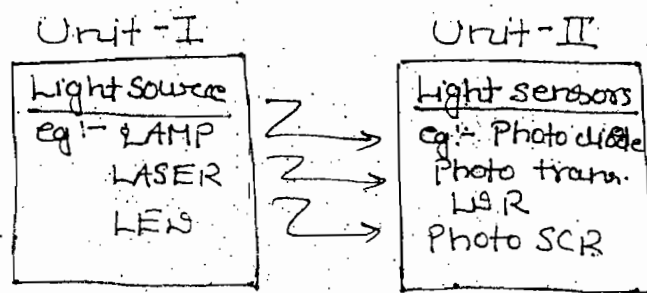 Unit-I
Light Source
eg:- LAMP
LASER
LED
Unit-II
Light sensors
eg:- Photo diode
Photo tran.
LDR
Photo SCR